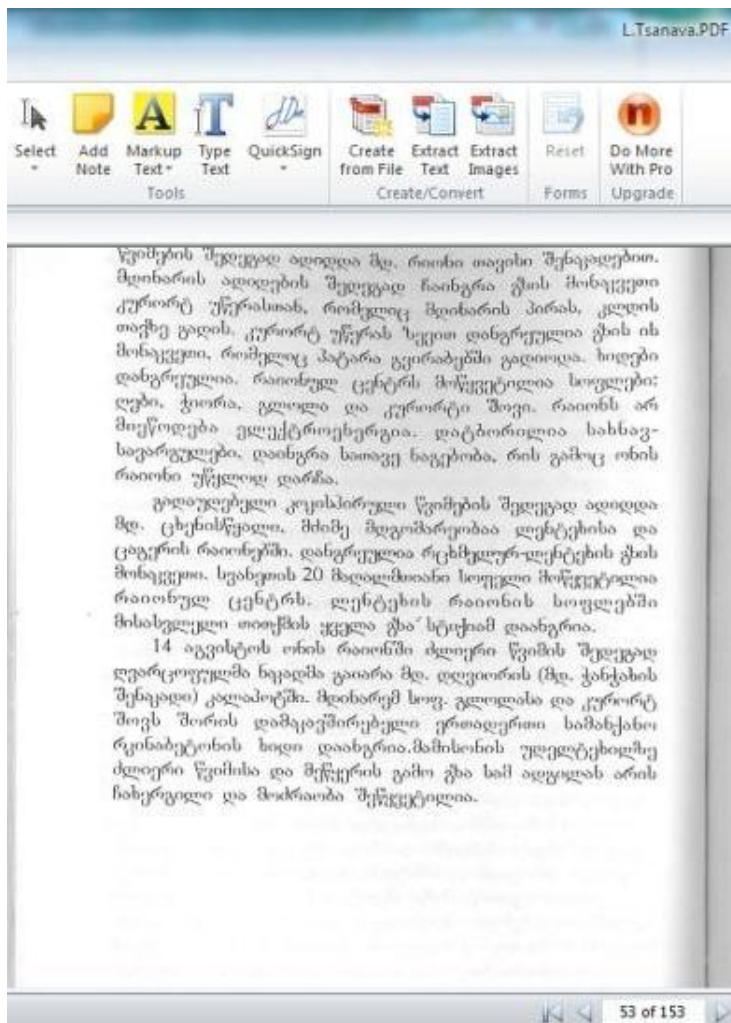 L.Tsanava.PDF
Select
Add Note
Markup Text
Type Text
QuickSign
Create from File
Extract Text
Extract Images
Reset
Do More With Pro
Tools
Create/Convert
Forms
Upgrade
წვიმების შედეგად ადიდდა მდ. რიონი თავისი შენაკადებით.
მდინარის ადიდების შედეგად ჩაინგრა გზის მონაკვეთი
კურორტ უწერასთან, რომელიც მდინარის პირას, კლდის
თავზე გადის. კურორტ უწერას ზევით დანგრეულია გზის ის
მონაკვეთი, რომელიც პატარა გვირაბებში გადიოდა. ხიდები
დანგრეულია. რაიონულ ცენტრს მოწყვეტილია სოფლები:
ღები, ჭიორა, გლოლა და კურორტი შოვი. რაიონს არ
მიეწოდება ელექტროენერგია. დატბორილია სახნავ-
სავარგულები, დაინგრა სათავე ნაგებობა, რის გამოც ონის
რაიონი უწყლოდ დარჩა.
გადაუღებელი კოკისპირული წვიმების შედეგად ადიდდა
მდ. ცხენისწყალი. მძიმე მდგომარეობაა ლენტეხისა და
ცაგერის რაიონებში. დანგრეულია რცხმელურ-ლენტეხის გზის
მონაკვეთი. სვანეთის 20 მაღალმთიანი სოფელი მოწყვეტილია
რაიონულ ცენტრს. ლენტეხის რაიონის სოფლებში
მისასვლელი თითქმის ყველა გზა სტიქიამ დაანგრია.
14 აგვისტოს ონის რაიონში ძლიერი წვიმის შედეგად
ღვარცოფულმა ნაკადმა გაიარა მდ. დღვიორის (მდ. ჭანჭახის
შენაკადი) კალაპოტში. მდინარემ სოფ. გლოლასა და კურორტ
შოვს შორის დამაკავშირებელი ერთადერთი სამანქანო
რკინაბეტონის ხიდი დაანგრია.მამისონის უღელტეხილზე
ძლიერი წვიმისა და მეწყერის გამო გზა სამ ადგილას არის
ჩახერგილი და მოძრაობა შეწყვეტილია.
53 of 153